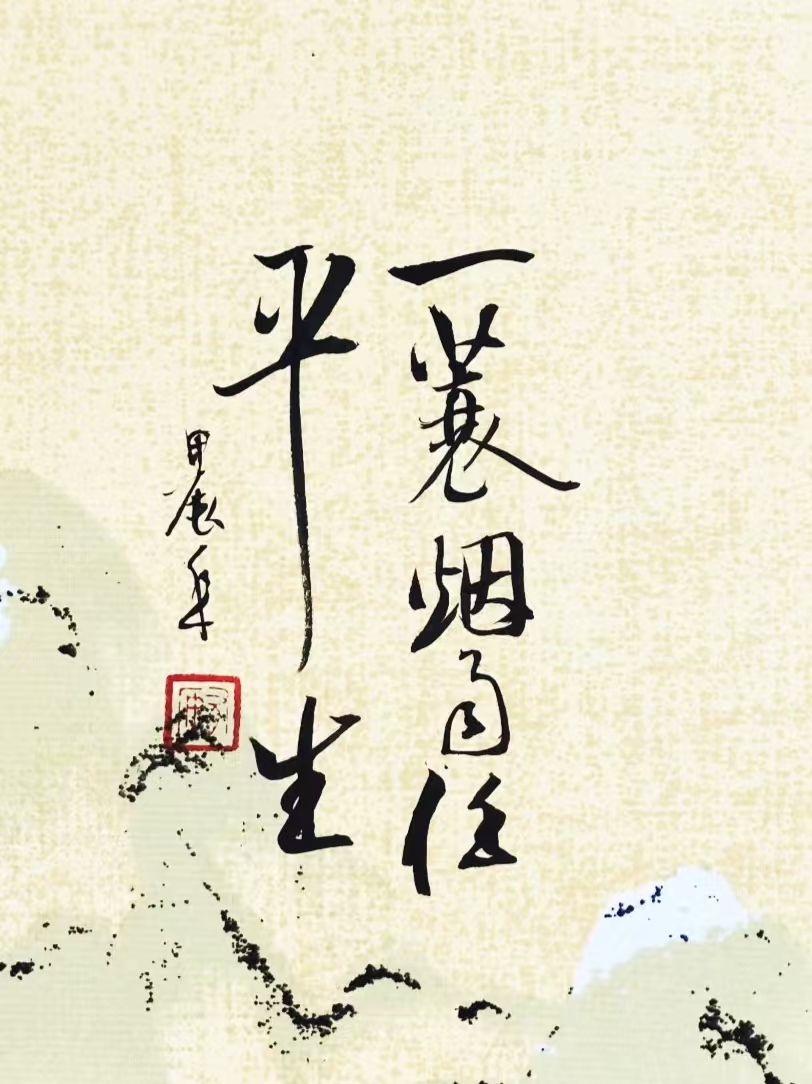 一蓑烟雨任
平生
甲辰年